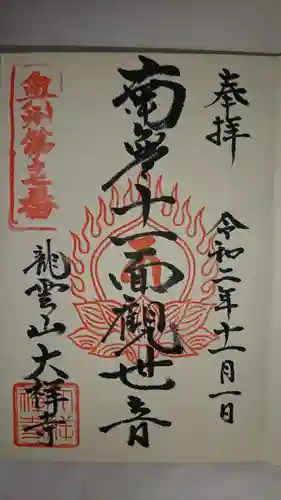 奉拝
令和二年十一月一日
南無十一面観世音
奥州第三番
龍雲山大祥寺